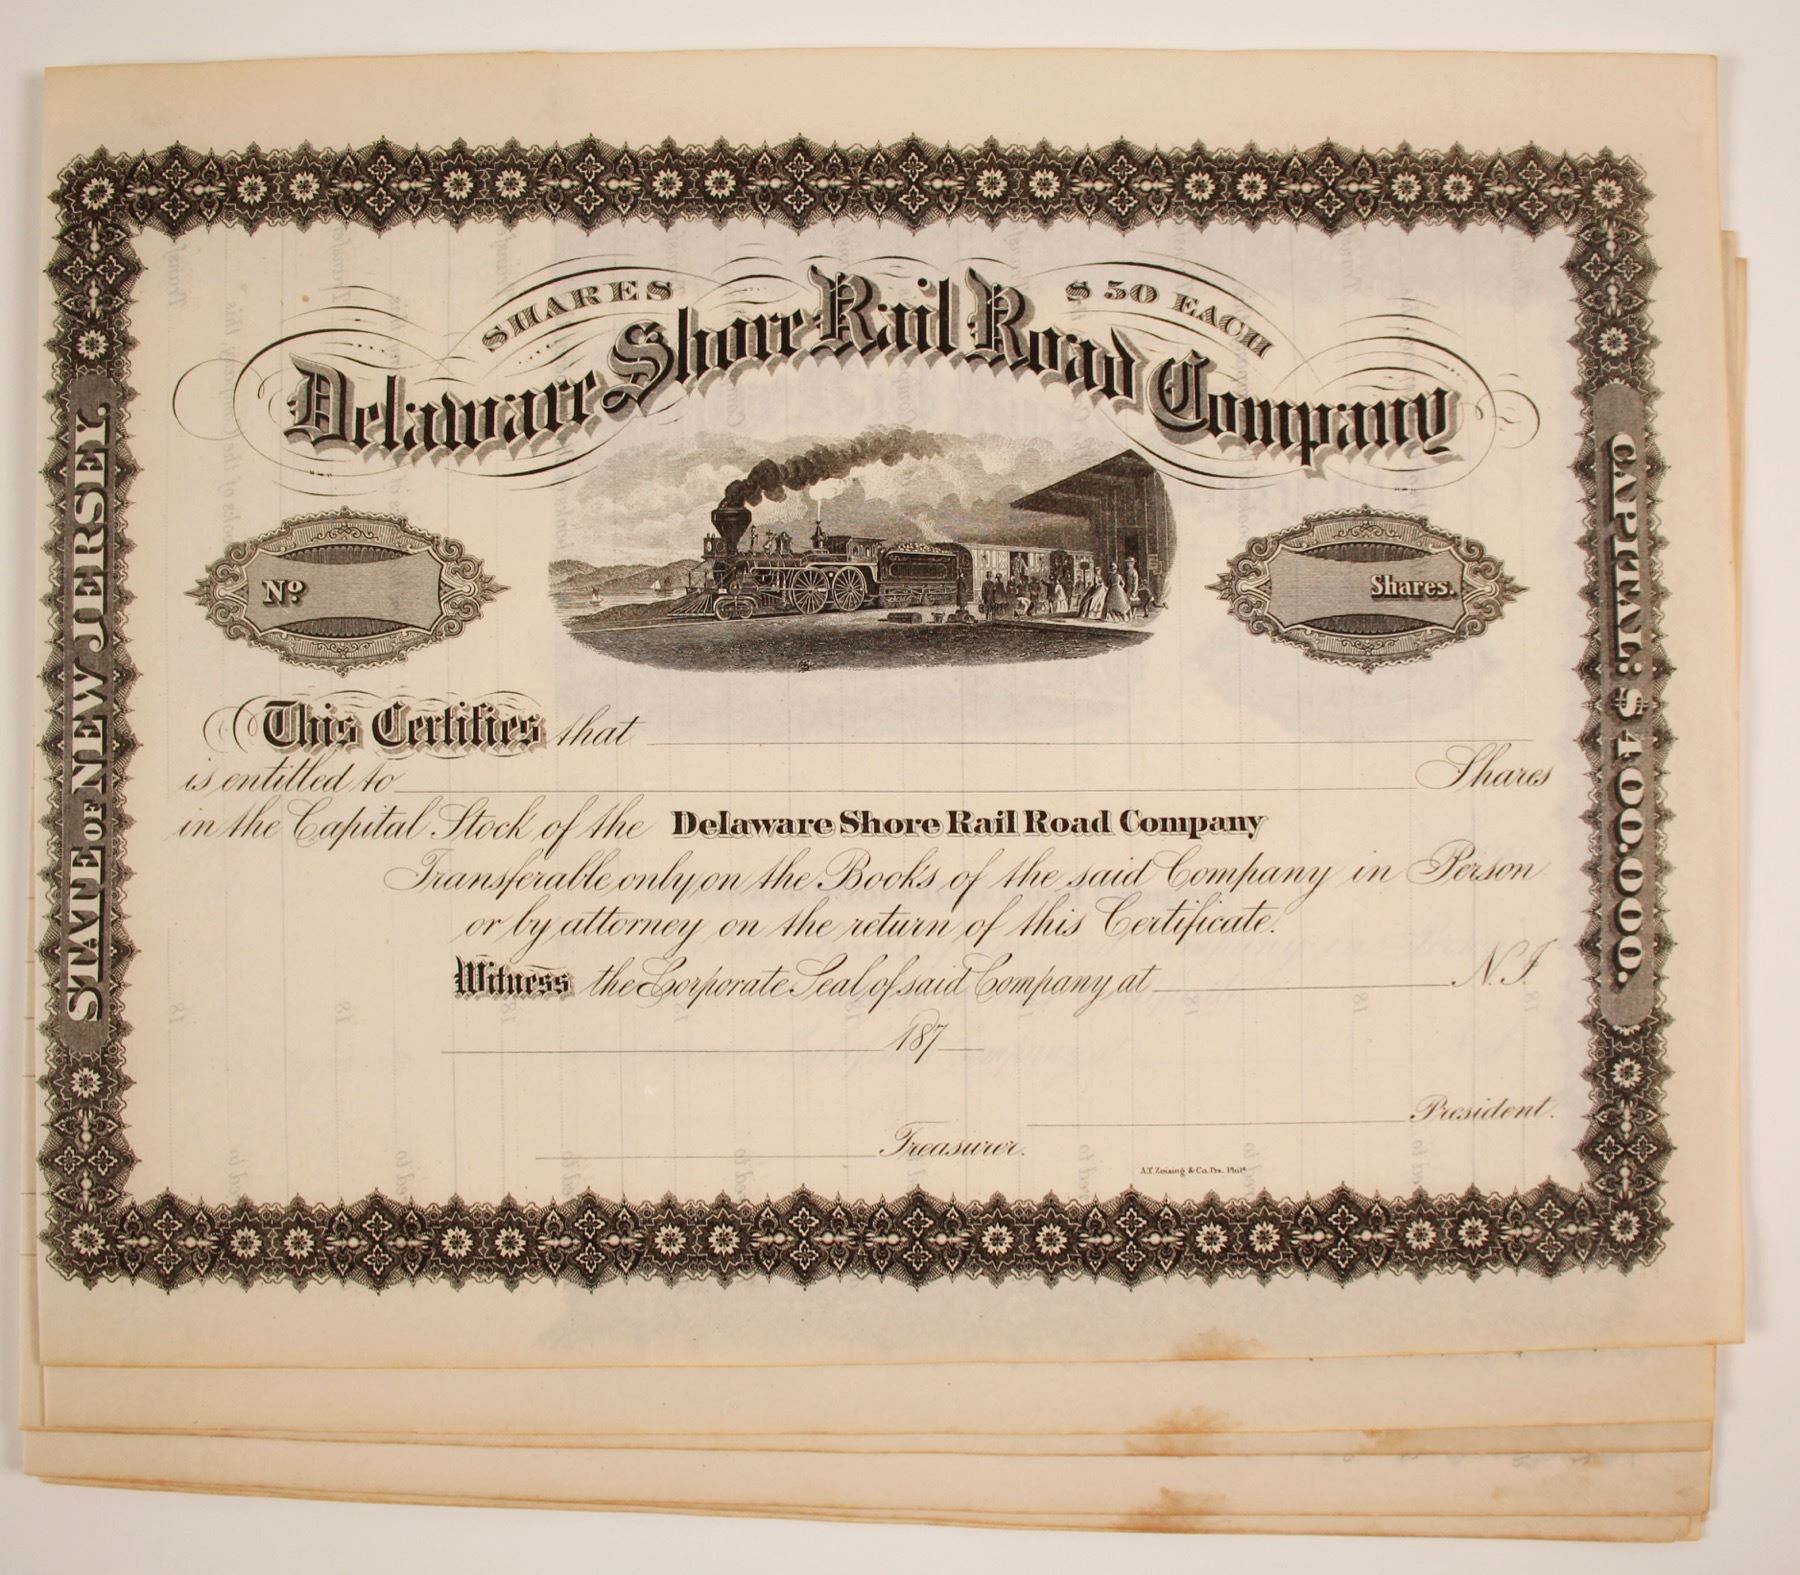 SHARES $50 EACH
Delaware Shore Rail Road Company
STATE OF NEW JERSEY
CAPITAL: $400.000.
No.
Shares.
This Certifies that
is entitled to Shares
in the Capital Stock of the Delaware Shore Rail Road Company
Transferable only on the Books of the said Company in Person
or by attorney on the return of this Certificate.
Witness the Corporate Seal of said Company at N.J.
187
President.
Treasurer.
A.T. Zeising & Co. Prs. Phila